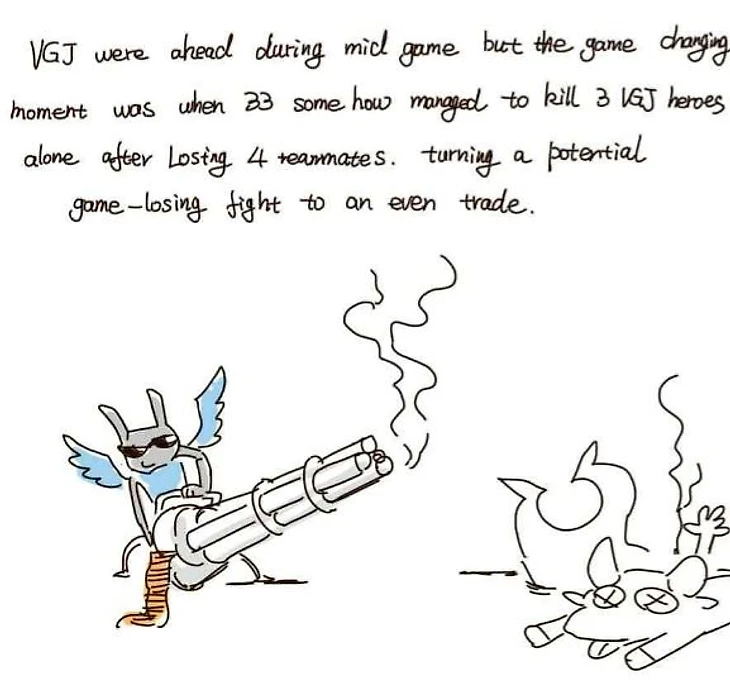 VGJ were ahead during mid game but the game changing
moment was when 33 some how managed to kill 3 VGJ heroes
alone after Losing 4 teammates. turning a potential
game-losing fight to an even trade.